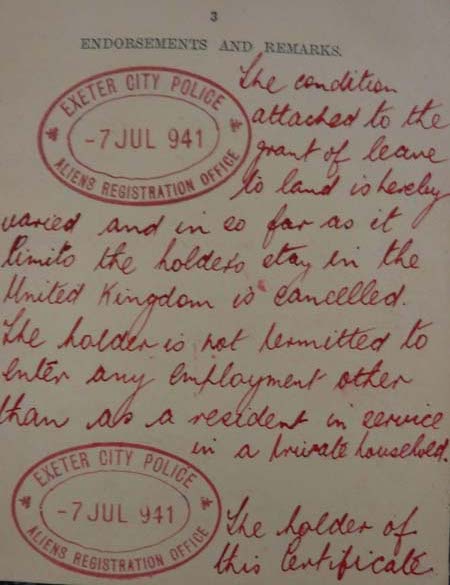 3
ENDORSEMENTS AND REMARKS.
EXETER CITY POLICE
-7 JUL 941
ALIENS REGISTRATION OFFICE
The condition
attached to the
grant of leave
to land is hereby
varied and in so far as it
limits the holders stay in the
United Kingdom is cancelled.
The holder is not permitted to
enter any employment other
than as a resident in service
in a private household.
EXETER CITY POLICE
-7 JUL 941
ALIENS REGISTRATION OFFICE
The holder of
this Certificate